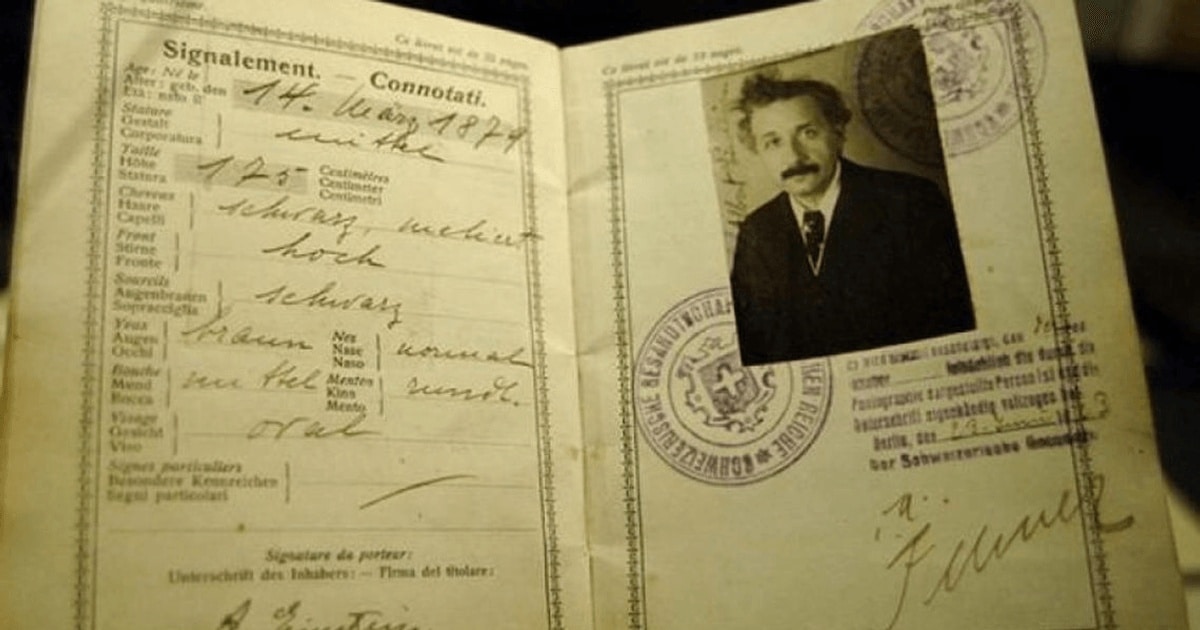 Ce livret est de 32 pages.
Signalement. — Connotati.
Age: Né le
Alter: geb. den
Età: nato il
14. März 1879
Stature
Gestalt
Corporatura
mittel
Taille
Höhe
Statura
175
Centimètres
Centimeter
Centimetri
Cheveux
Haare
Capelli
schwarz, meliert
Front
Stirne
Fronte
hoch
Sourcils
Augenbrauen
Sopracciglia
schwarz
Yeux
Augen
Occhi
braun
Nez
Nase
Naso
normal
Bouche
Mund
Bocca
mittel
Menton
Kinn
Mento
rundl.
Visage
Gesicht
Viso
oval
Signes particuliers
Besondere Kennzeichen
Segni particolari
Signature du porteur:
Unterschrift des Inhabers: — Firma del titolare:
A. Einstein
Ce livret est de 32 pages.
SCHWEIZERISCHE GESANDTSCHAFT
REICHE
Es wird hiermit
die durch die
Photographie dargestellte Person ist und die
Unterschrift eigenhändig vollzogen
Berlin, den
Der Schweizerische Gesandte.